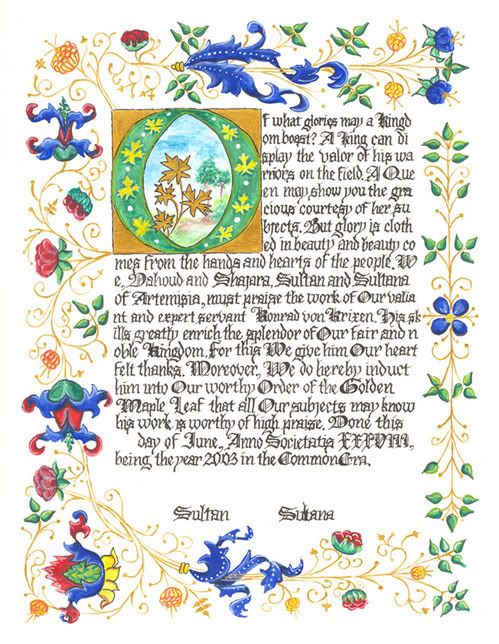 Of what glories may a Kingd
om boast? A King can di
splay the valor of his wa
rriors on the field. A Que
en may show you the gra
cious courtesy of her su
bjects. But glory is cloth
ed in beauty and beauty co
mes from the hands and hearts of the people. W
e, Dahoud and Shajara, Sultan and Sultana
of Artemisia, must praise the work of Our valia
nt and expert servant Konrad von Krixen. His sk
ills greatly enrich the splendor of Our fair and n
oble Kingdom. For this We give him Our heart
felt thanks. Moreover, We do hereby induct
him into Our worthy Order of the Golden
Maple Leaf that all Our subjects may know
his work is worthy of high praise. Done this
day of June, Anno Societatis XXXVIII,
being the year 2003 in the Common Era.
Sultan Sultana